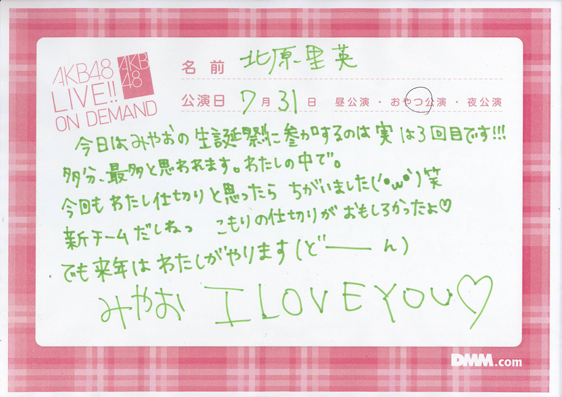 AKB48
LIVE!!
ON DEMAND
AKB
48
名前 北原里英
公演日 7月31日 昼公演・おやつ公演・夜公演
今日はみやおの生誕祭に参加するのは実は3回目です!!!
多分、最多と思われます。わたしの中で。
今回もわたし仕切りと思ったら ちがいました(´・ω・`)笑
新チームだしねっ こもりの仕切りがおもしろかったよ♡
でも来年はわたしがやります(どーーん)
みやお I LOVE YOU♡
DMM.com